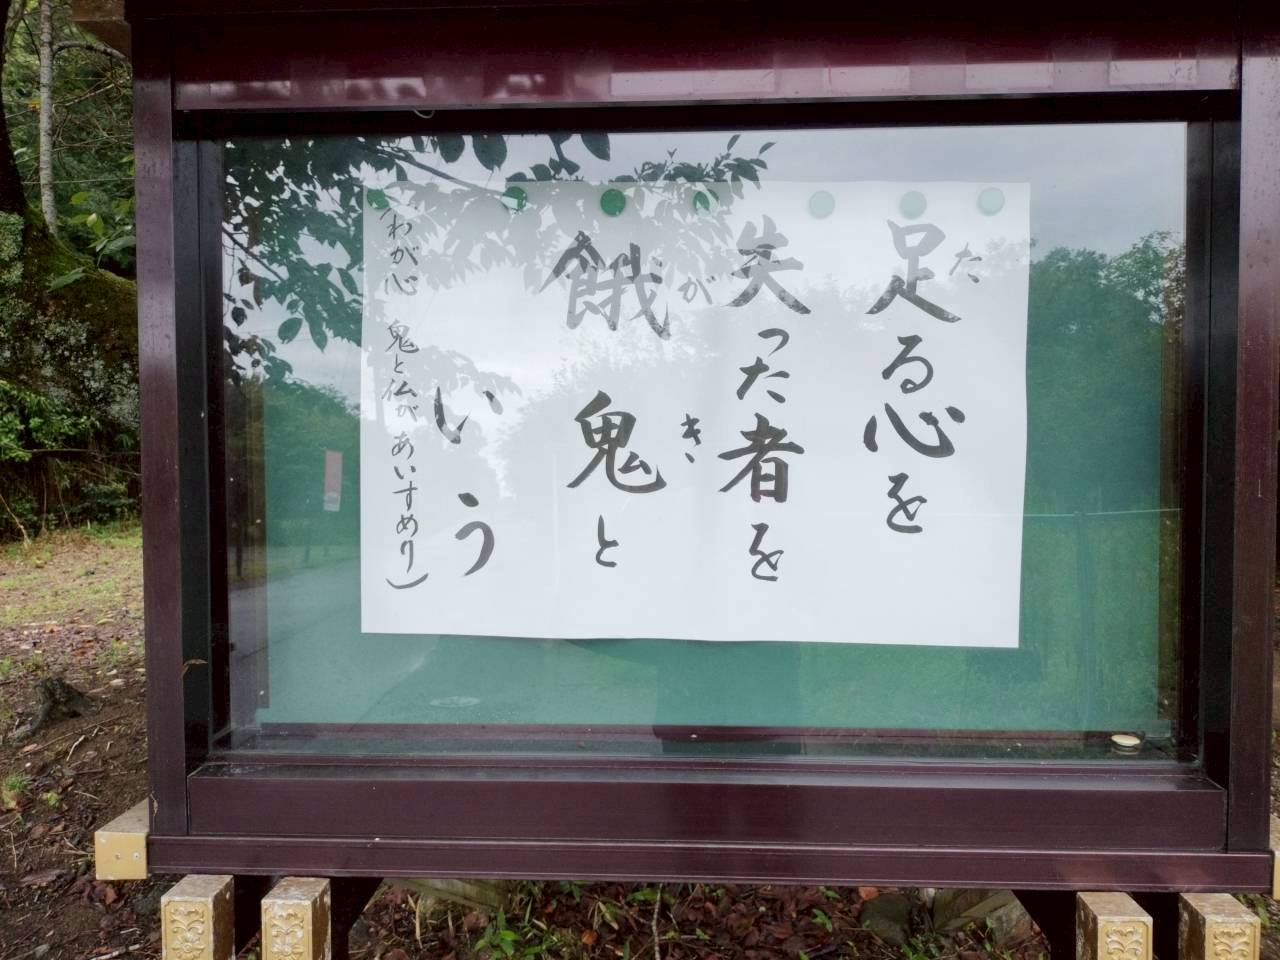 足る心を
失った者を
餓鬼と
いう
(わが心 鬼と仏が あいすめり)
た
が
き